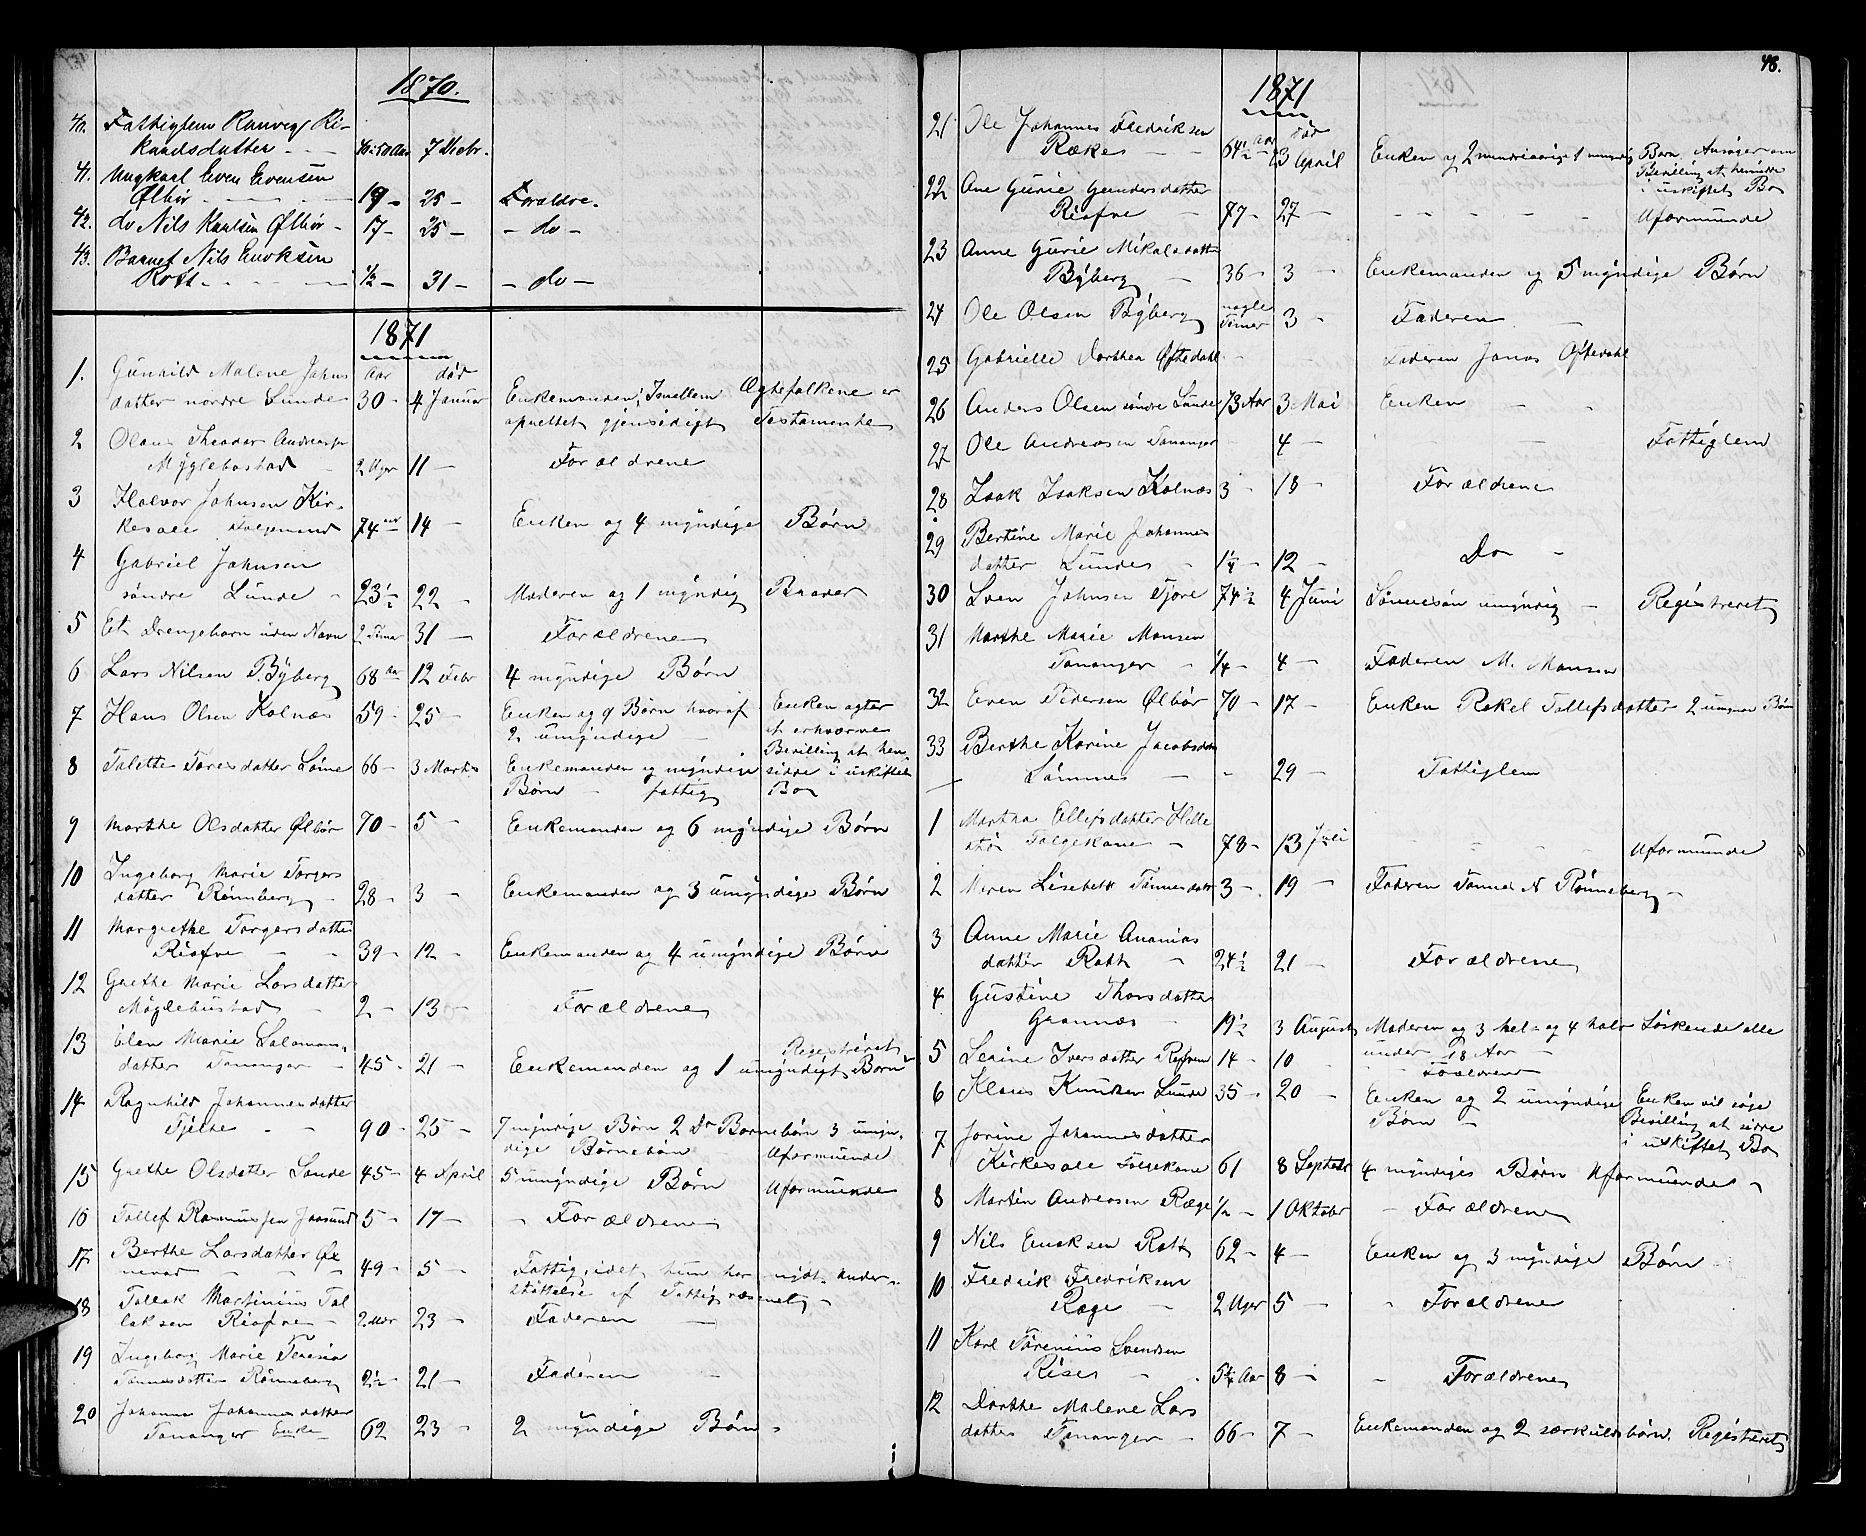 1870.
40. Fattiglem Ranveig Ri-
kaadsdatter - - 40-50 Aar 7 Decbr.
41. Ungkarl Even Evensen
Ølbør - - - 19 - 25 - Forældre.
42. do Nils Knutsen Ølbør - 17 - 25 - - do -
43. Barnet Nils Enoksen
Rott - - - - 1/2 - 31 - - do -
1871
Aar død
1. Gunhild Malene Johns
datter nordre Sunde 30 - 4 Januar Enkemanden, Imellem Ægtefolkene er
oprettet gjensidigt Testamente
2 Olaus Theodor Andreassen
Myglebostad 2 Uger 11 - Forældrene
3 Halvor Johnsen Kir-
kesole Folgemand 74 aar 14 - Enken og 4 myndige Børn
4 Gabriel Johnsen
søndre Sunde - 23 1/2 22 - Moderen og 1 myndig Broder
5 Et Drengebarn uden Navn 2 Timer 31 - Forældrene
6 Lars Nilsen Byberg 68 Aar 12 Febr 4 myndige Børn
7 Hans Olsen Kolnæs 59 - 25 - Enken og 9 Børn hvoraf Enken agter
2 umyndige - at erhværve
Bevilling at hen-
8 Talette Toresdatter Sømme 66 - 3 Marts Enkemanden og myndige sidde i uskiftet
Børn - fattig Bo
9 Marthe Olsdatter Ølbør 70 - 5 - Enkemanden og 6 myndige Børn
10 Ingeborg Marie Torgers
datter Rønneberg - 28 - 3 - Enkemanden og 3 umyndige Børn
11 Margrethe Torgersdatter
Risfne - - 39 - 12 - Enkemanden og 4 umyndige Børn
12 Grethe Marie Larsdatter
Møglebustad - 2 - 13 Forældrene
13 Elen Marie Salomons- Registreret
datter Tananger - 45 - 21 - Enkemanden og 1 umyndigt Børn
14 Ragnhild Johannesdatter
Tjelse - - 90 - 25 - 7 myndige Børn 2 Do Børnebørn 3 umyn-
dige Børnebørn Uformuende
15 Grethe Olsdatter Sande 45 - 4 April 5 umyndige Børn Uformuende
16 Tollef Rasmussen Jaasund 5 - 17 - - Forældrene
17 Berthe Larsdatter Øx
nevad - - - 49 - 5 - Fattig, idet hun har nydt Under-
støttelse af Fattigvæsenet -
18 Tallak Martinius Tal
laksen Risfne - 2 Mdr 23 - Faderen -
19 Ingeborg Marie Teresia
Tønnesdatter Rønneberg 2 1/2 - 21 - Faderen -
20 Johanna Johannesdatter
Tananger Enke 62 23 - 2 myndige Børn -
48.
1871
død
21 Ole Johannes Fredriksen
Røkes - - 64 1/2 Aar 23 April Enken og 2 mindreaarige 1 myndig Børn. Ansøger om
Bevilling at hensidde
i uskiftet Bo
22 Ane Gurie Gundersdatter
Risfne - 77 - 27 - - - - - - Uformuende
23 Anne Gurie Mikalsdatter
Byberg - 36 - 3 - Enkemanden og 5 myndige Børn
24 Ole Olsen Byberg nogle
Timer 3 - Faderen -
25 Gabrielle Dorthea Oftedahl - - Faderen Jonas Oftedahl
26 Anders Olsen søndre Sunde 73 Aar 3 Mai Enken - -
27 Ole Andreasen Tananger - 4 - - Fattiglem
28 Isak Isaksen Kolnæs 3 - 18 - Forældrene
29 Bertine Marie Johannes
datter Sundes - 1 1/4 - 12 - Do -
30 Sven Johnsen Tjore 74 1/2 4 Juni Sønnesøn umyndig - Registreret
31 Marthe Marie Monsen
Tananger - 1/4 - 4 - Faderen M. Monsen
32 Even Pedersen Ølbør 70 - 17 - Enken Rakel Tollefsdatter 2 umyn Børn
33 Berthe Karine Jacobsdatter
Sømmes - - 29 - Fattiglem
1 Martha Ellefsdatter Helle
stø Folgekone - 78 - 13 Juli - - - - Uformuende
2 Maren Lisebeth Tønnesdatter 3 - 19 - Faderen Tønnes N Rønneberg -
3 Anne Marie Ananias
datter Rott - 24 1/2 21 - Forældrene
4 Gustine Thorsdatter
Grannæs - 19 1/2 3 August Moderen og 3 hel- og 4 halv Søskende alle
under 18 Aar -
5 Seine Iversdatter Refsnes 14 - 10 Forældrene
6 Klaus Knudsen Sunde 35 - 20 - Enken og 2 umyndige Enken vil søge
Børn - Bevilling at sidde
i uskiftet Bo
7 Jorine Johannesdatter
Kirkesole Folgekone 61 8 Septebr 4 myndiges Børn Uformuende -
8 Martin Andreasen Ræge 1/2 - 1 Oktobr - Forældrene
9 Nils Enoksen Rott 62 - 4 - Enken og 3 myndige Børn
10 Fredrik Fredriksen
Ræge - 2 Uger 5 - - Forældrene
11 Karl Tørenius Svendsen
Rises - - 5 1/4 Aar 8 - - Forældrene
12 Dorthe Malene Lars
datter Tananger - 66 - 7 - Enkemanden og 2 særkuldsbørn. Registreret